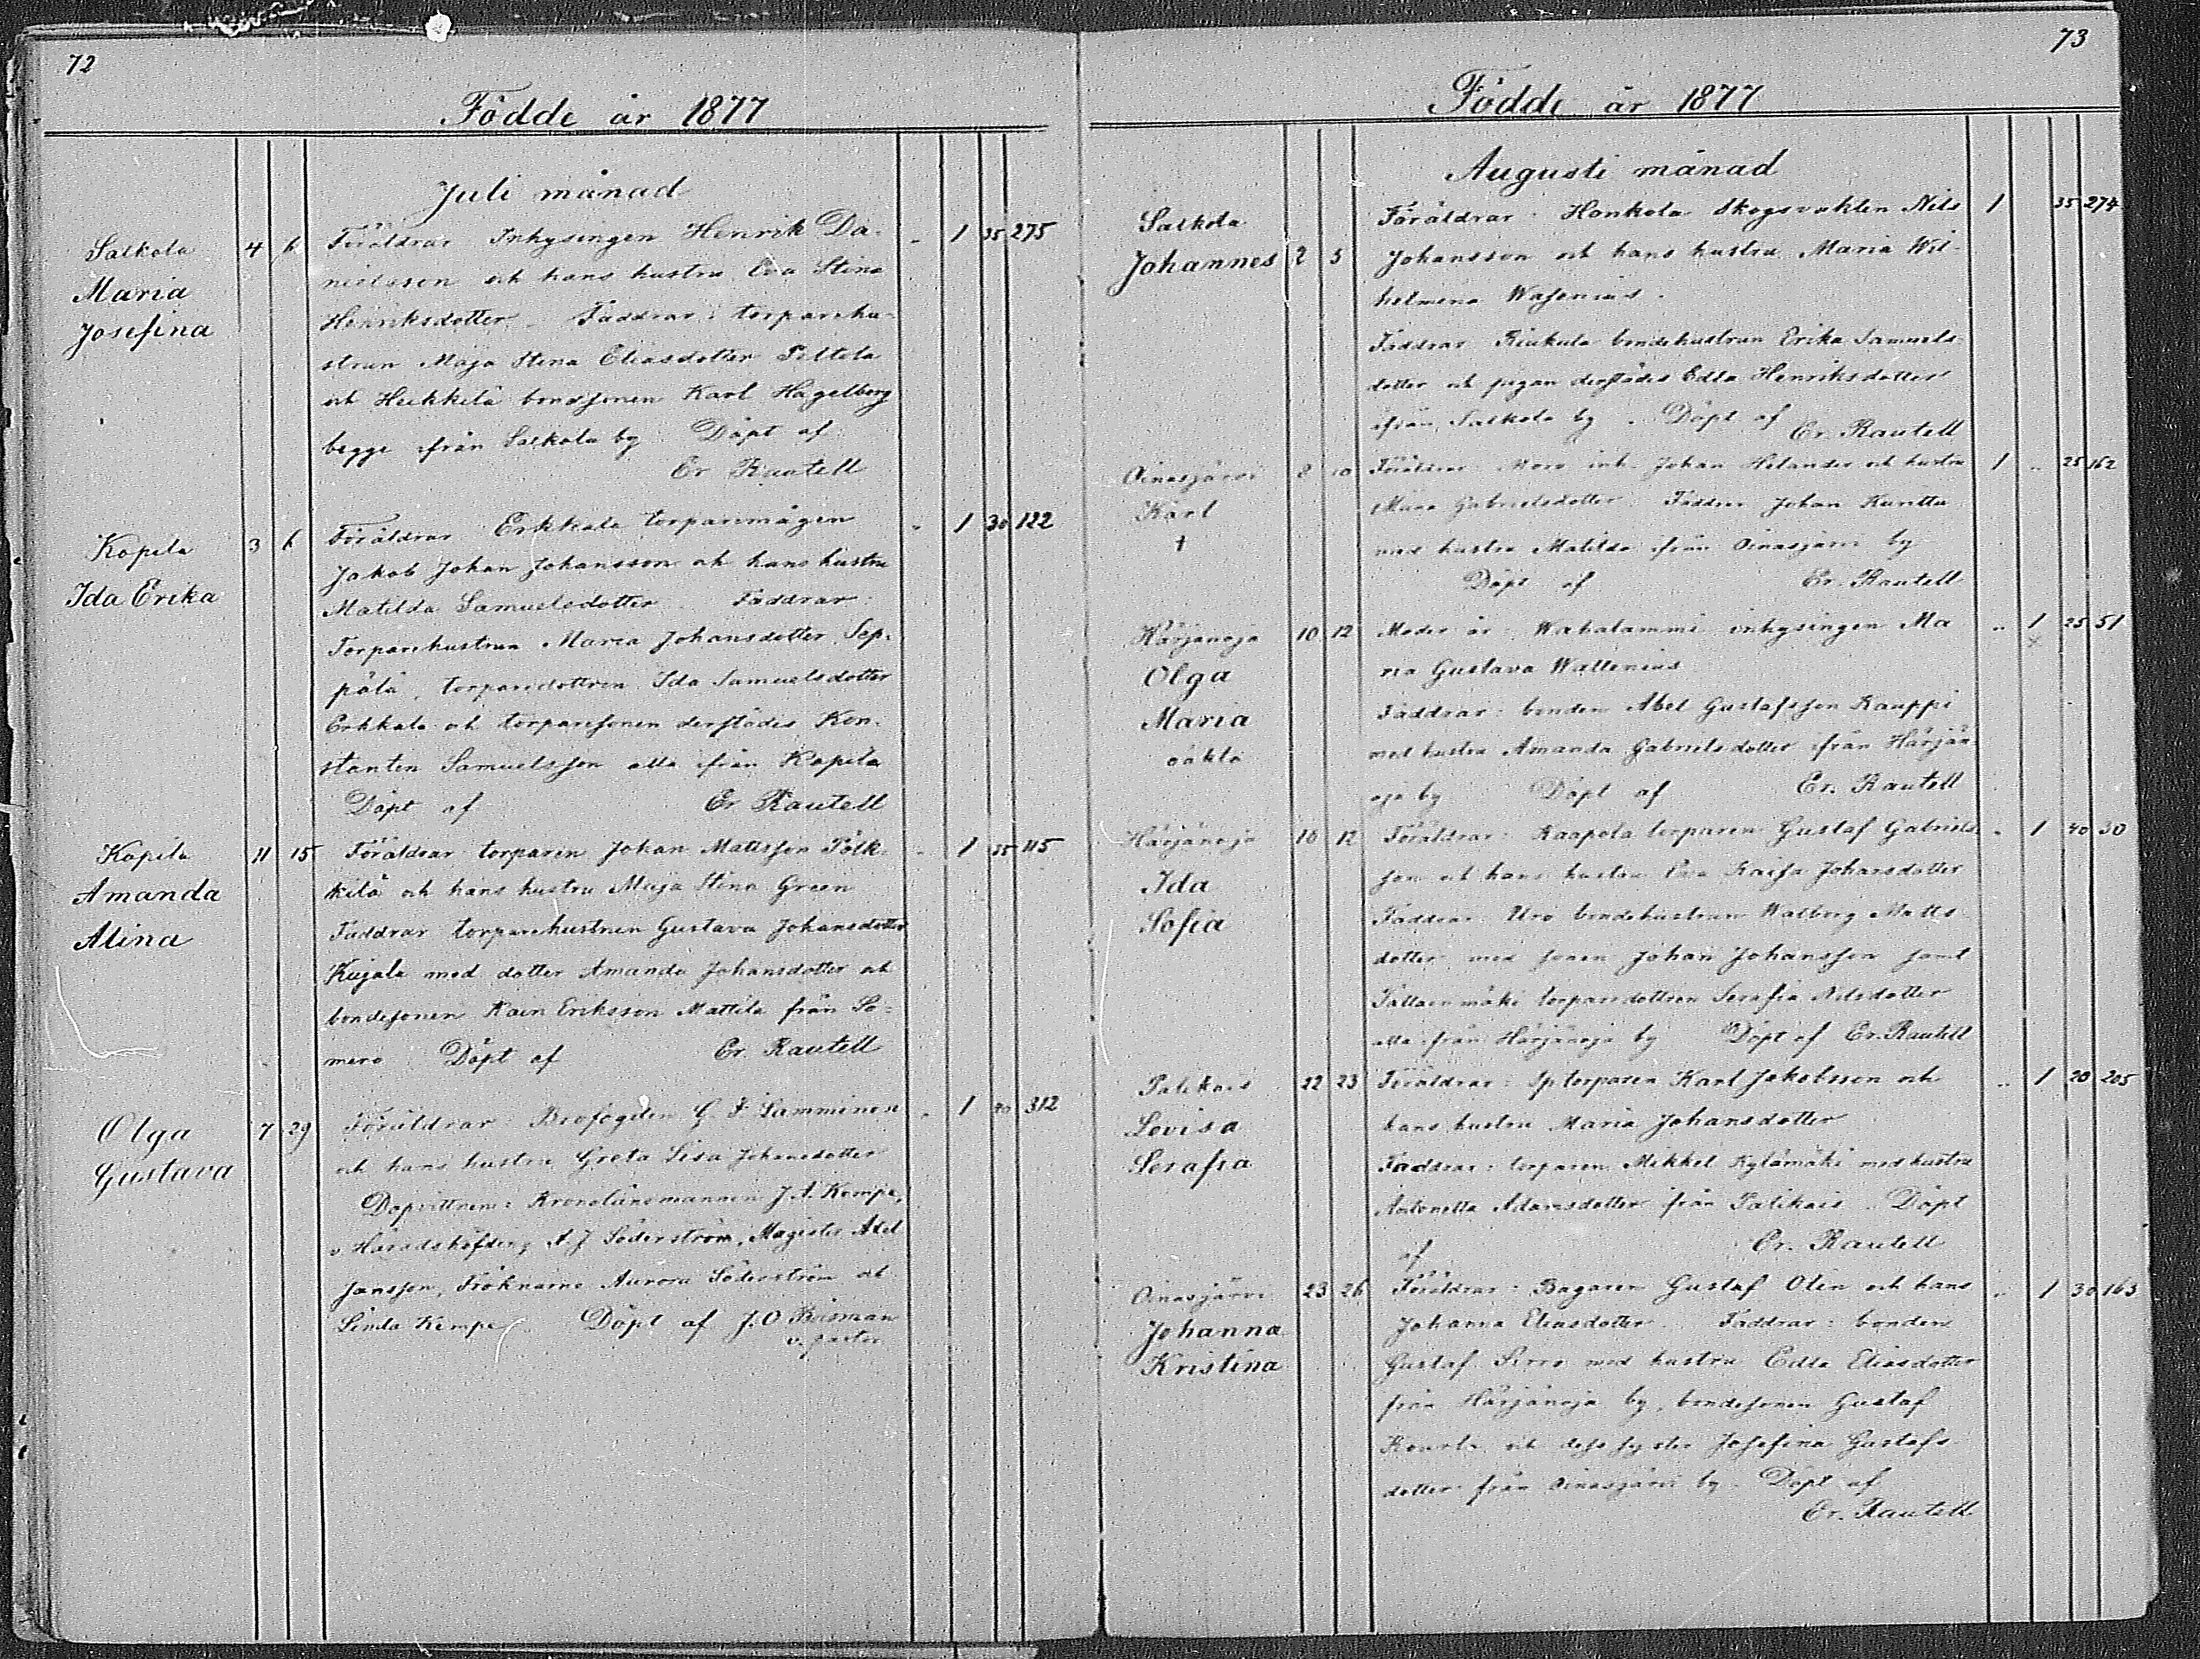 72
Födde år 1877
Juli månad
Salkola 4 6 Föräldrar Inhysingen Henrik Da- " 1 35 275
Maria nielsson och hans hustru Eva Stina
Josefina Henriksdotter. Faddrar: torparehu-
strun Maja Stina Eliasdotter Peltola
och Heikkilä bondsonen Karl Hagelberg
begge ifrån Salkola by Döpt af
Er Rautell
Kopila 3 6 Föräldrar Erkkala torparemågen " 1 30 122
Ida Erika Jakob Johan Johansson och hans hustru
Matilda Samuelsdotter. Faddrar
Torparehustrun Maria Johansdotter Sep-
pälä, torparedottren Ida Samuelsdotter
Erkkala och torparesonen derstädes Kon-
stantin Samuelsson alla ifrån Kopila
Döpt af Er Rautell
Kopila 11 15 Föräldrar torparen Johan Mattsson Pölk- " 1 35 115
Amanda kilä och hans hustru Maja Stina Green
Alina Faddrar torparehustrun Gustava Johansdotter
Kujala med dotter Amanda Johansdotter och
bondesonen Kain Eriksson Mattila från So-
mero Döpt af Er. Rautell
Olga 7 29 Föräldrar Brofogden G. F Samminen " 1 40 312
Gustava och hans hustru Greta Lisa Johansdotter
Dopvittnen: Kronolänsmannen J. A. Kempe,
v Häradshöfding A. J Söderström, Magister Axel
Jansson, Fröknarne Aurora Söderström och
Linda Kempe. Döpt af J. O Boisman
v. pastor
73
Födde år 1877
Augusti månad
Salkola Föräldrar: Honkola Skogsvakten Nils 1 35 274
Johannes 2 5 Johansson och hans hustru Maria Wil-
helmina Wasenius.
Faddrar Riukula bondehustrun Erika Samuels-
dotter och pigan derstädes Edla Henriksdotter
ifrån Salkola by. Döpt af
Er. Rautell
Oinasjärvi 8 10 Föräldrar Moro inh. Johan Helander och hustru 1 " 25 162
Karl Maria Gabrielsdotter Faddrar Johan Kunttu
† med hustru Matilda ifrån Oinasjärvi by
Döpt af Er. Rautell
Härjänoja 10 12 Moder är Wabalammi inhysingen Ma " 1 25 51
Olga ria Gustava Wallenius ×
Maria Faddrar: bonden Abel Gustafsson Kauppi
oäkta med hustru Amanda Gabrielsdotter ifrån Härjän
oja by Döpt af Er. Rautell
Härjänoja 10 12 Föräldrar: Raapola torparen Gustaf Gabriels- " 1 40 30
Ida son och hans hustru Eva Kaisa Johansdotter
Sofia Faddrar Uro bondehustrun Walborg Matts
dotter med sonen Johan Johansson samt
torparedottren Serafia Nilsdotter
alla från Härjänoja by Döpt af Er. Rautell
Palikais 22 23 Föräldrar: Sptorparen Karl Jakobsson och " 1 20 205
Lovisa hans hustru Maria Johansdotter
Serafia Faddrar: torparen Mikkel Kylämäki med hustru
Antonetta Adamsdotter från Palikais. Döpt
af Er. Rautell
Oinasjärvi 23 26 Föräldrar: Bagaren Gustaf Olin och hans " 1 30 163
Johanna Johanna Eliasdotter. Faddrar: bonden
Kristina Gustaf Sirro med hustru Edla Eliasdotter
från Härjänoja by, bondesonen Gustaf
och dess syster Josefina Gustafs
dotter från Oinasjärvi by. Döpt af
Er. Rautell